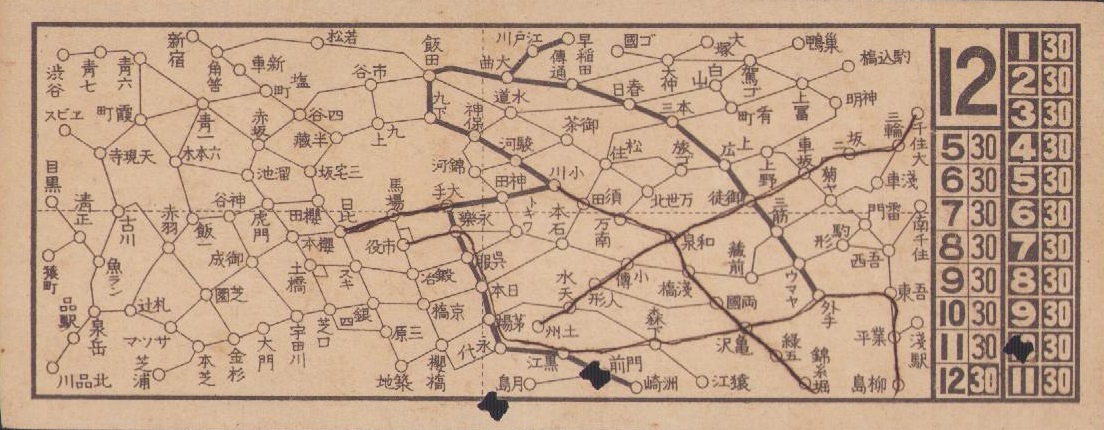 新宿
若松
飯田
川戸江
早稲田
國ゴ
大塚
鴨巣
橋込駒
渋谷
青七
青六
角筈
車新
塩町
谷市
曲大
傳通
大神
白山
駕ゴ
スビエ
町霞
青一
赤坂
谷四
蔵半
上九
九下
神保
道水
日春
三本
町肴
上冨
明神
寺現天
木本六
池溜
坂宅三
河錦
河駿
茶御
松住
旅ゴ
広上
上野
車坂
坂二
三輪
千住大
目黒
清正
古川
赤羽
飯一
谷神
虎門
田櫻
日比
馬場
手大
田神
川小
田須
北世万
徒御
三筋
菊ヤ
車淺
猿町
魚ラン
成御
本櫻
役市
樂永
トキワ
本石
万南
泉和
蔵前
形駒
門雷
南千住
西吾
品駅
泉岳
札辻
園芝
土橋
スキ
冶鍛
服呉
水天
形人
傳小
橋淺
國両
ウマヤ
外手
東吾
マツサ
芝浦
本芝
金杉
大門
宇田川
芝口
四銀
原三
橋京
本日
場茅
州土
森下
沢亀
緑五
錦糸堀
平業
淺駅
川品北
地築
櫻橋
代永
島月
江黒
前門
崎洲
江猿
島柳
12
5 30
6 30
7 30
8 30
9 30
10 30
11 30
12 30
1 30
2 30
3 30
4 30
5 30
6 30
7 30
8 30
9 30
30
11 30